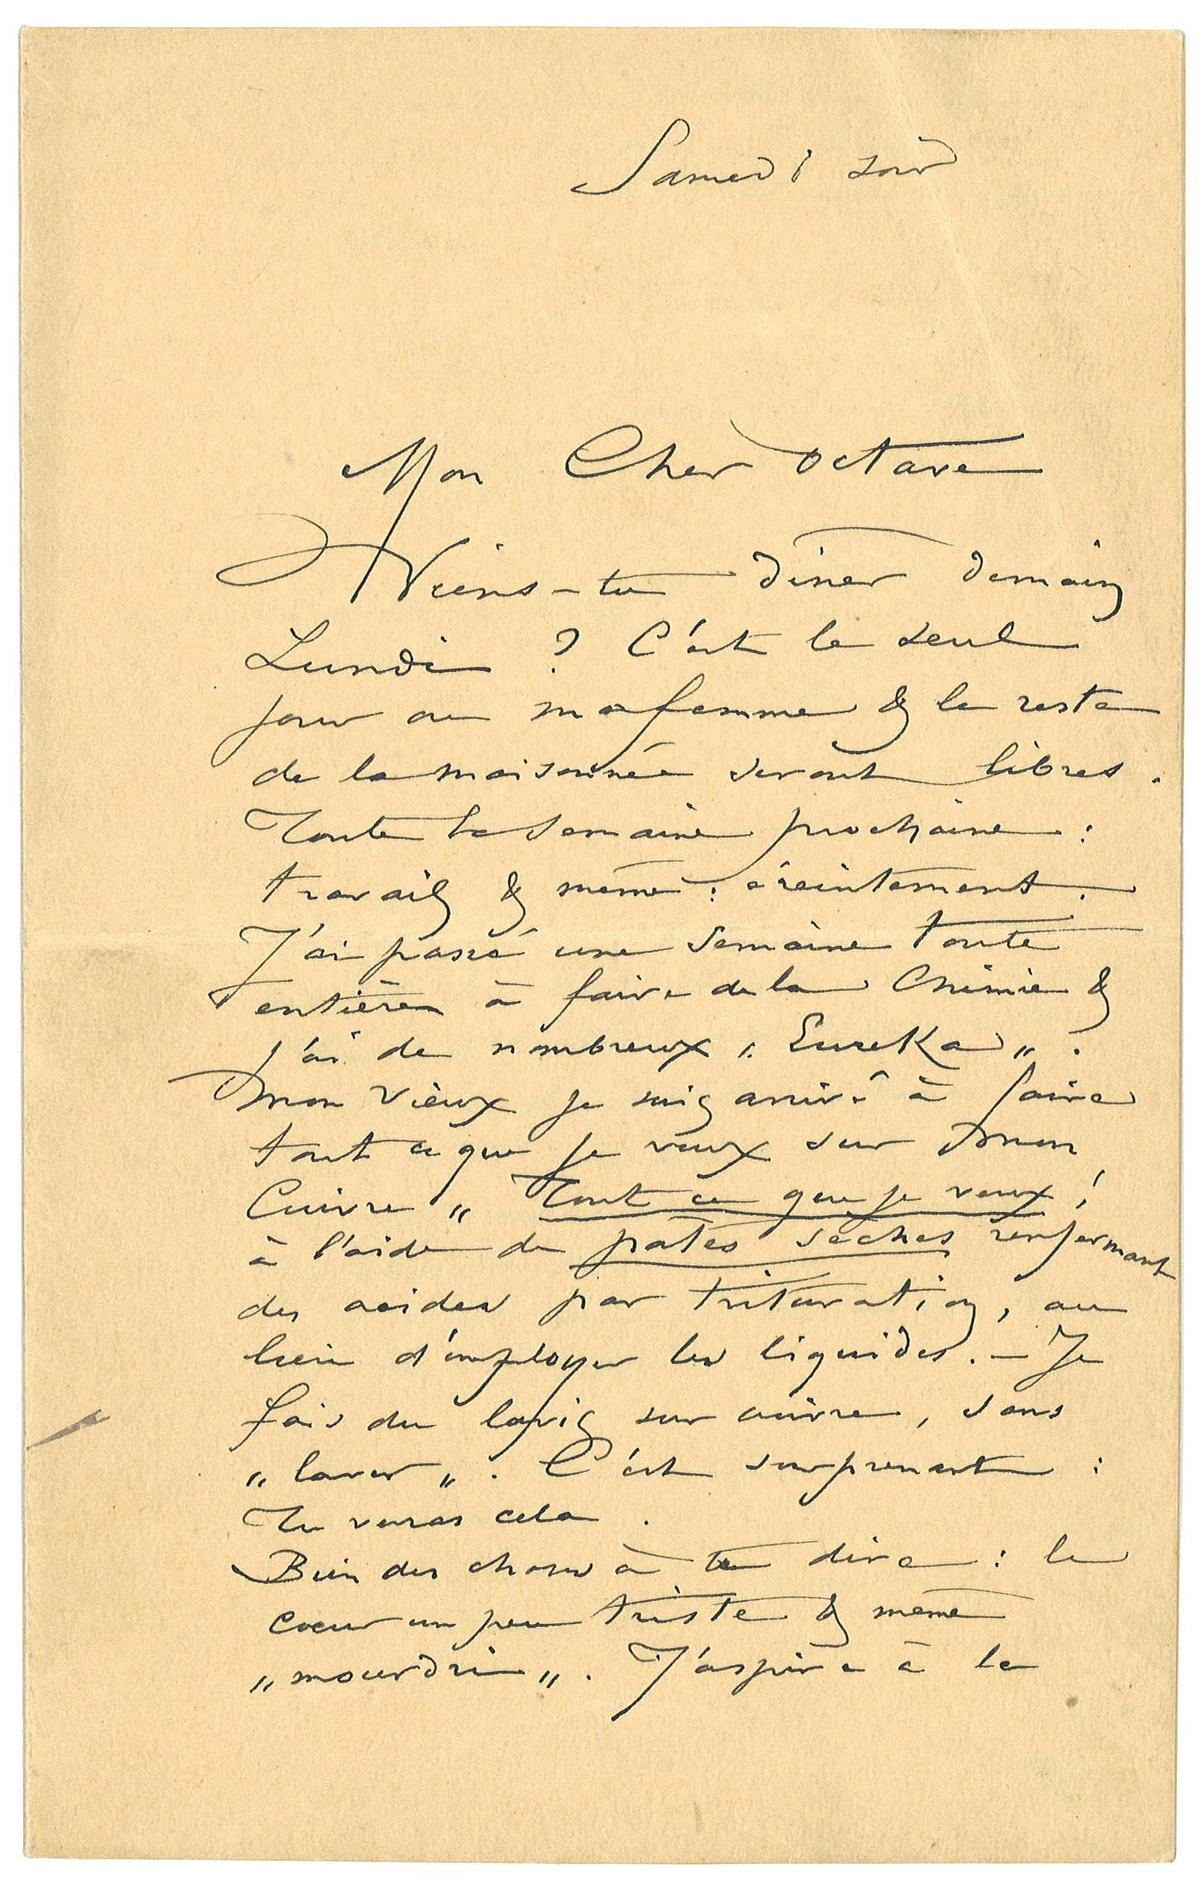 Samedi soir
Mon Cher Octave
Viens-tu diner demain
Lundi ? C'est le seul
jour ou ma femme & le reste
de la maisonnée seront libres.
Toute la Semaine prochaine :
travail & même : éreintement.
J'ai passé une Semaine toute
entière à faire de la Chimie &
j'ai de nombreux „ Eureka „.
mon vieux je suis arrivé à faire
tout ce que je veux sur mon
Cuivre „ Tout ce que je veux !
à l'aide de pates sèches renfermant
des acides par trituration, au
lieu d'employer les liquides. — Je
fais du lavis sur cuivre, sans
„ laver „. C'est surprenant :
Tu verras cela.
Bien des choses à te dire : le
coeur un peu triste & même
„ mourdri „. J'aspire à la